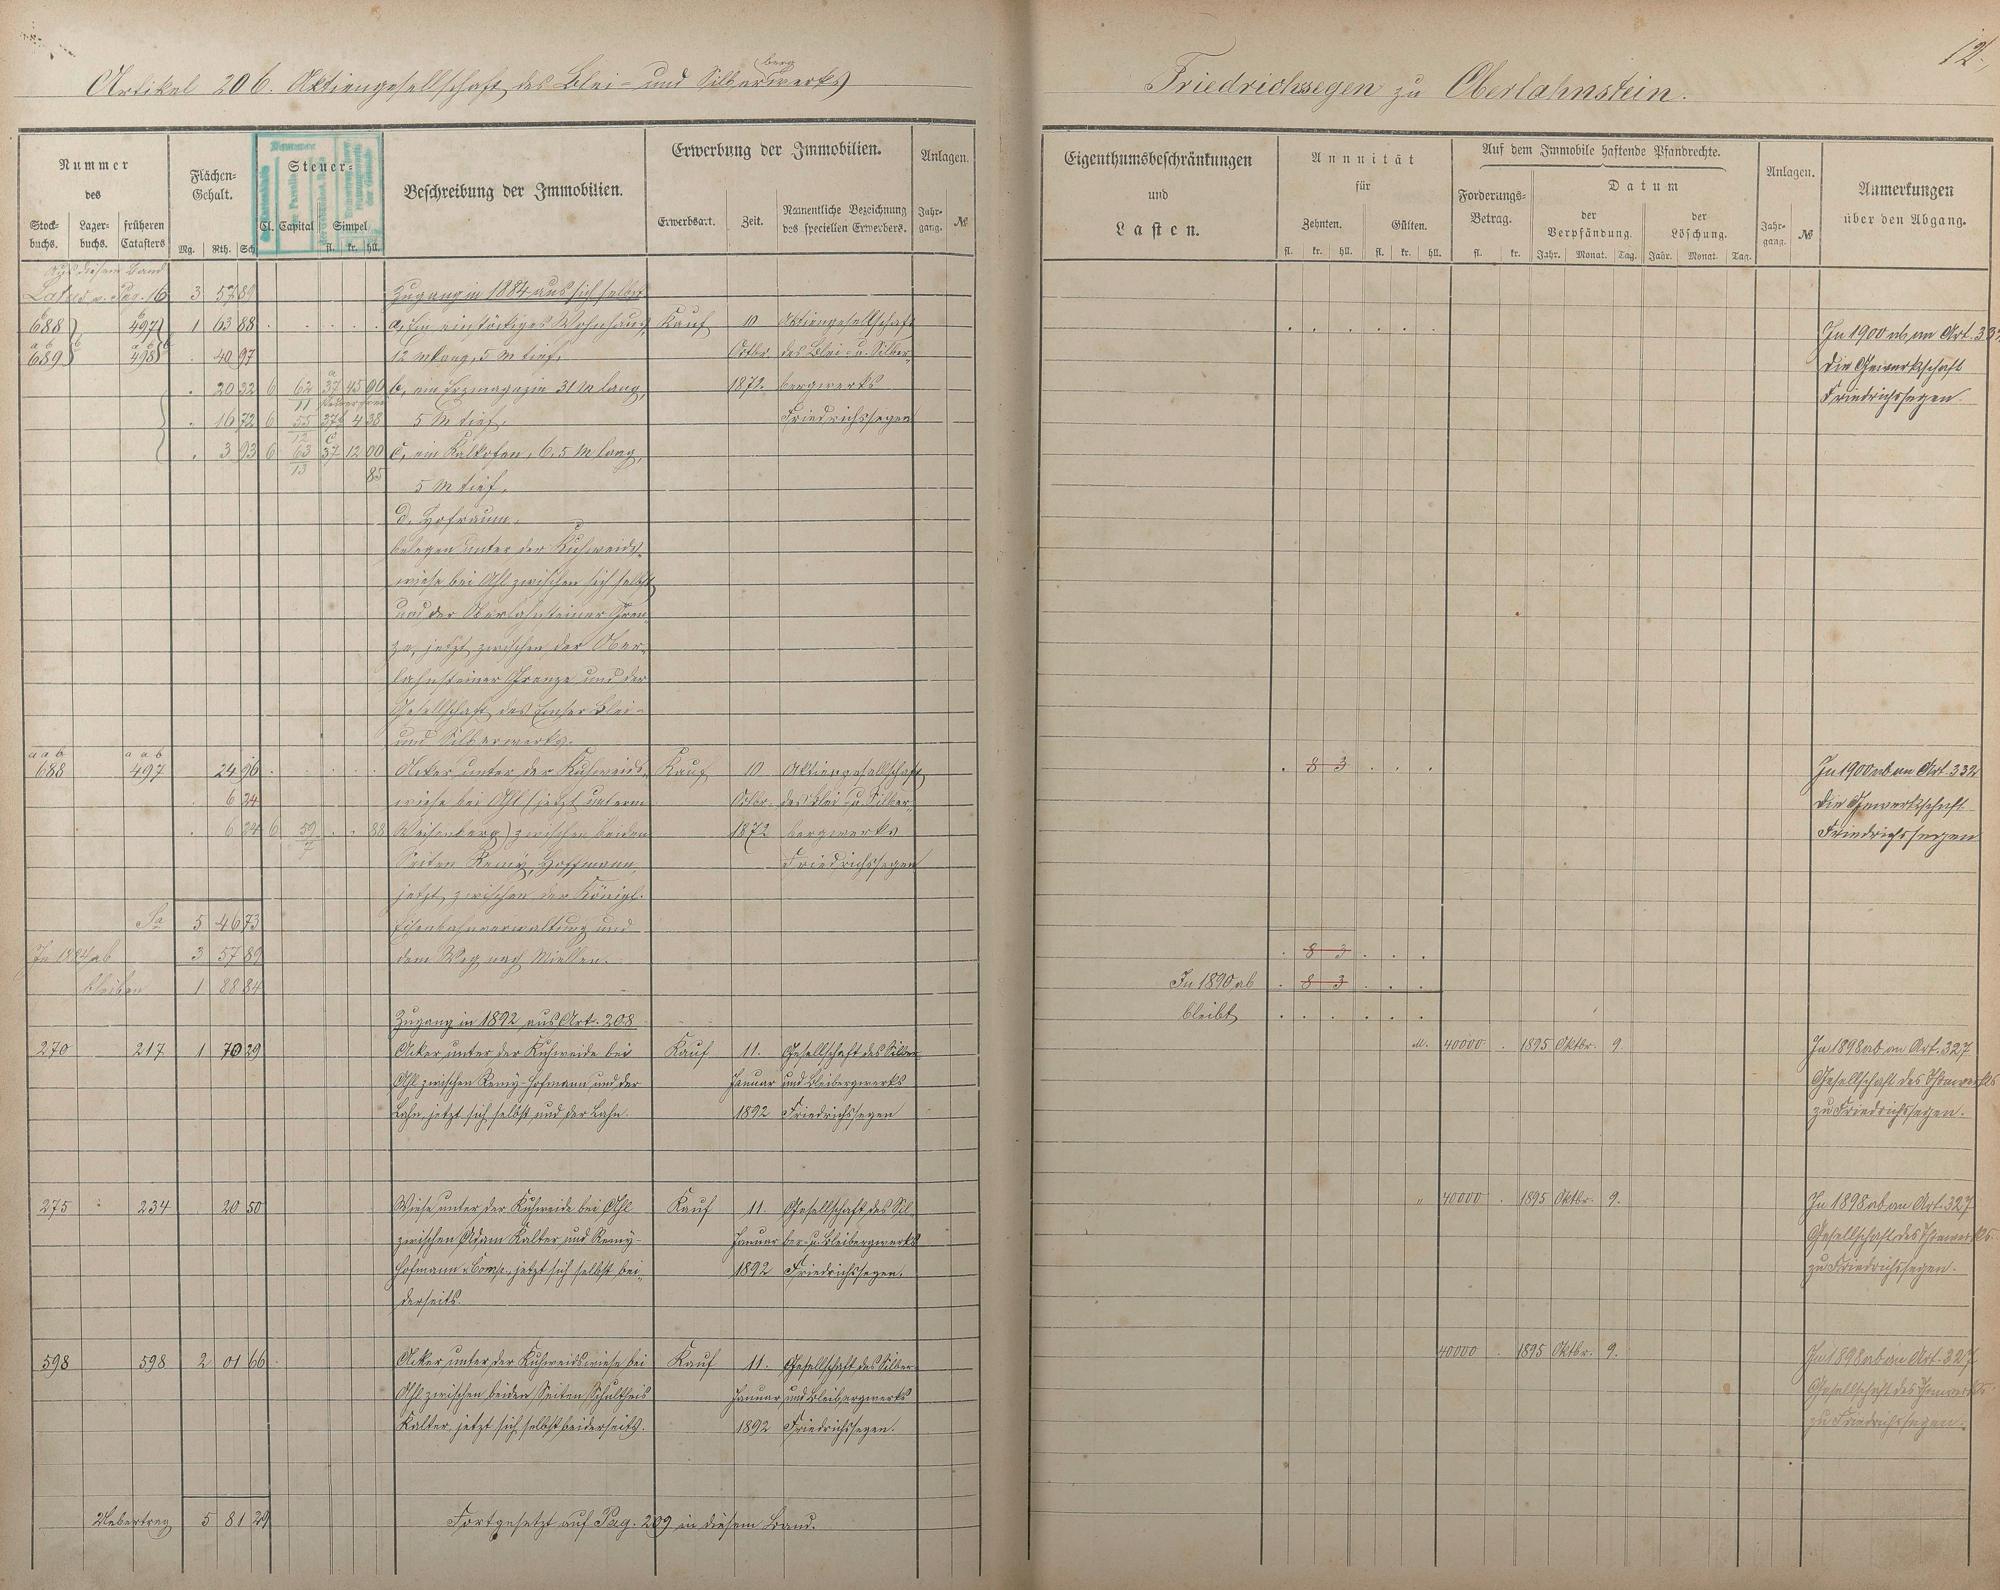 12.
Artikel 206. Aktiengesellschaft des Blei- und Silberbergwerks Friedrichssegen zu Oberlahnstein.
Nummer
des
Stock-
buchs.
Lager-
buchs.
früheren
Catasters
Flächen-
Gehalt.
Mg. Rth. Sch.
Steuer-
Cl. Capital Simpel
fl. kr. hll.
Beschreibung der Immobilien.
Erwerbung der Immobilien.
Erwerbsart. Zeit.
Namentliche Bezeichnung
des speciellen Erwerbers.
Anlagen.
Jahr-
gang. №
Eigenthumsbeschränkungen
und
Lasten.
Annuität
für
Zehnten. Gülten.
fl. kr. hll. fl. kr. hll.
Auf dem Immobile haftende Pfandrechte.
Forderungs-
Betrag.
fl. kr.
Datum
der
Verpfändung.
der
Löschung.
Jahr. Monat. Tag. Jahr. Monat. Tag.
Anlagen.
Jahr-
gang. №
Anmerkungen
über den Abgang.
Aus diesem Band
Latus v. Pag. 16 3 57 89 Zugang in 1884 aus sich selbst
688 497 1 63 88 a, Ein einstöckiges Wohnhaus, Kauf 10 Aktiengesellschaft
689 498 40 97 12 m lang, 5 M tief, Octbr. des Blei- u. Silber-
20 22 6 62 37 45 00 b, ein Erzmagazin 31 M lang, 1872. bergwerks
11
16 72 6 55 37 4 38 5 M tief, Friedrichssegen
12
3 93 6 63 37 12 00 c, ein Kalkofen, 6,5 M lang,
13 85
5 M tief,
d, Hofraum,
belegen unter der Kuhweids-
wiese bei Ahl zwischen sich selbst
und der Oberlahnsteiner Gren-
ze, jetzt zwischen der Ober-
lahnsteiner Grenze und der
Gesellschaft des Emser Blei-
und Silberwerks.
In 1900 ab an Art. 33
die Gewerkschaft
Friedrichssegen
a a b a a b
688 497 24 96 Acker unter der Kuhweids- Kauf 10 Aktiengesellschaft
6 24 wiese bei Ahl (jetzt unterm Octbr. des Blei- u. Silber-
6 24 6 59 88 Weisenberg) zwischen beiden 1872 bergwerks
7
Seiten Remy, Hoffmann, Friedrichssegen
jetzt zwischen der Königl.
Sa 5 46 73 Eisenbahnverwaltung und
In 1884 ab 3 57 89 dem Weg nach Miellen.
bleiben 1 88 84
8 3
In 1900 ab an Art. 332
die Gewerkschaft
Friedrichssegen
8 3
In 1890 ab 8 3
bleibt
Zugang in 1892 aus Art. 208
270 217 1 70 29 Acker unter der Kuhweide bei Kauf 11. Gesellschaft des Silber-
Ahl zwischen Remy-Hofmann und der Januar und Bleibergwerks
Lahn, jetzt sich selbst und der Lahn. 1892 Friedrichssegen
M. 40000 1895 Oktbr. 9.
In 1898 ab an Art. 327
Gesellschaft des Thonwerks
zu Friedrichssegen.
275 234 20 50 Wiese unter der Kuhweide bei Ahl Kauf 11. Gesellschaft des Sil-
zwischen Adam Kalter und Remy- Januar ber- u. Bleibergwerks
Hofmann u Comp., jetzt sich selbst bei- 1892 Friedrichssegen.
derseits.
" 40000 1895 Oktbr. 9.
In 1898 ab an Art. 327
Gesellschaft des Thonwerks
zu Friedrichssegen.
598 598 2 01 66 Acker unter der Kuhweidswiese bei Kauf 11. Gesellschaft des Silber-
Ahl zwischen beiden Seiten Schultheis Januar und Bleibergwerks
Kalter, jetzt sich selbst beiderseits. 1892 Friedrichssegen.
40000 1895 Oktbr. 9.
In 1898 ab an Art. 327
Gesellschaft des Thonwerks
zu Friedrichssegen.
Uebertrag 5 81 29 Fortgesetzt auf Pag. 209 in diesem Band.